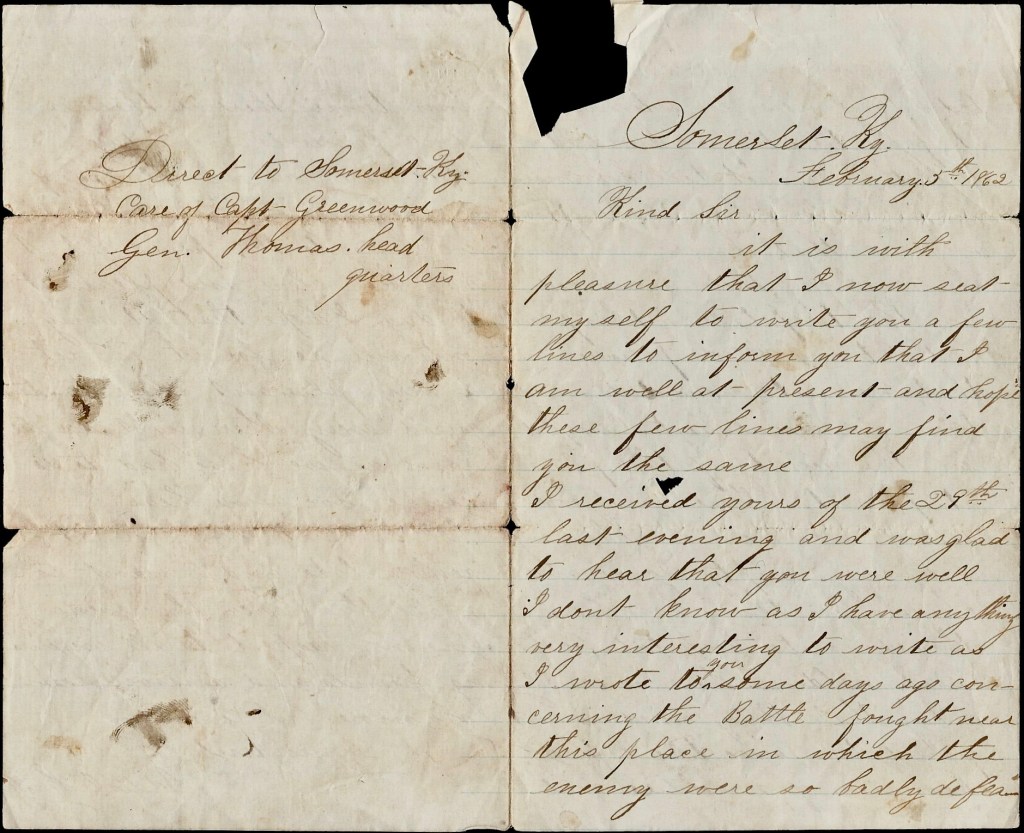 Direct to Somerset. Ky.
Care of Capt Greenwood
Gen. Thomas. head
quarters
Somerset. Ky.
February. 3th. 1862
Kind. Sir
it is with
pleasure that I now seat
myself to write you a few
lines to inform you that I
am well at present and hope
these few lines may find
you the same
I received yours of the 29th
last evening and was glad
to hear that you were well
I dont know as I have any thing
very interesting to write as
I wrote to you some days ago con-
cerning the Battle fought near
this place in which the
enemy were so badly defea-